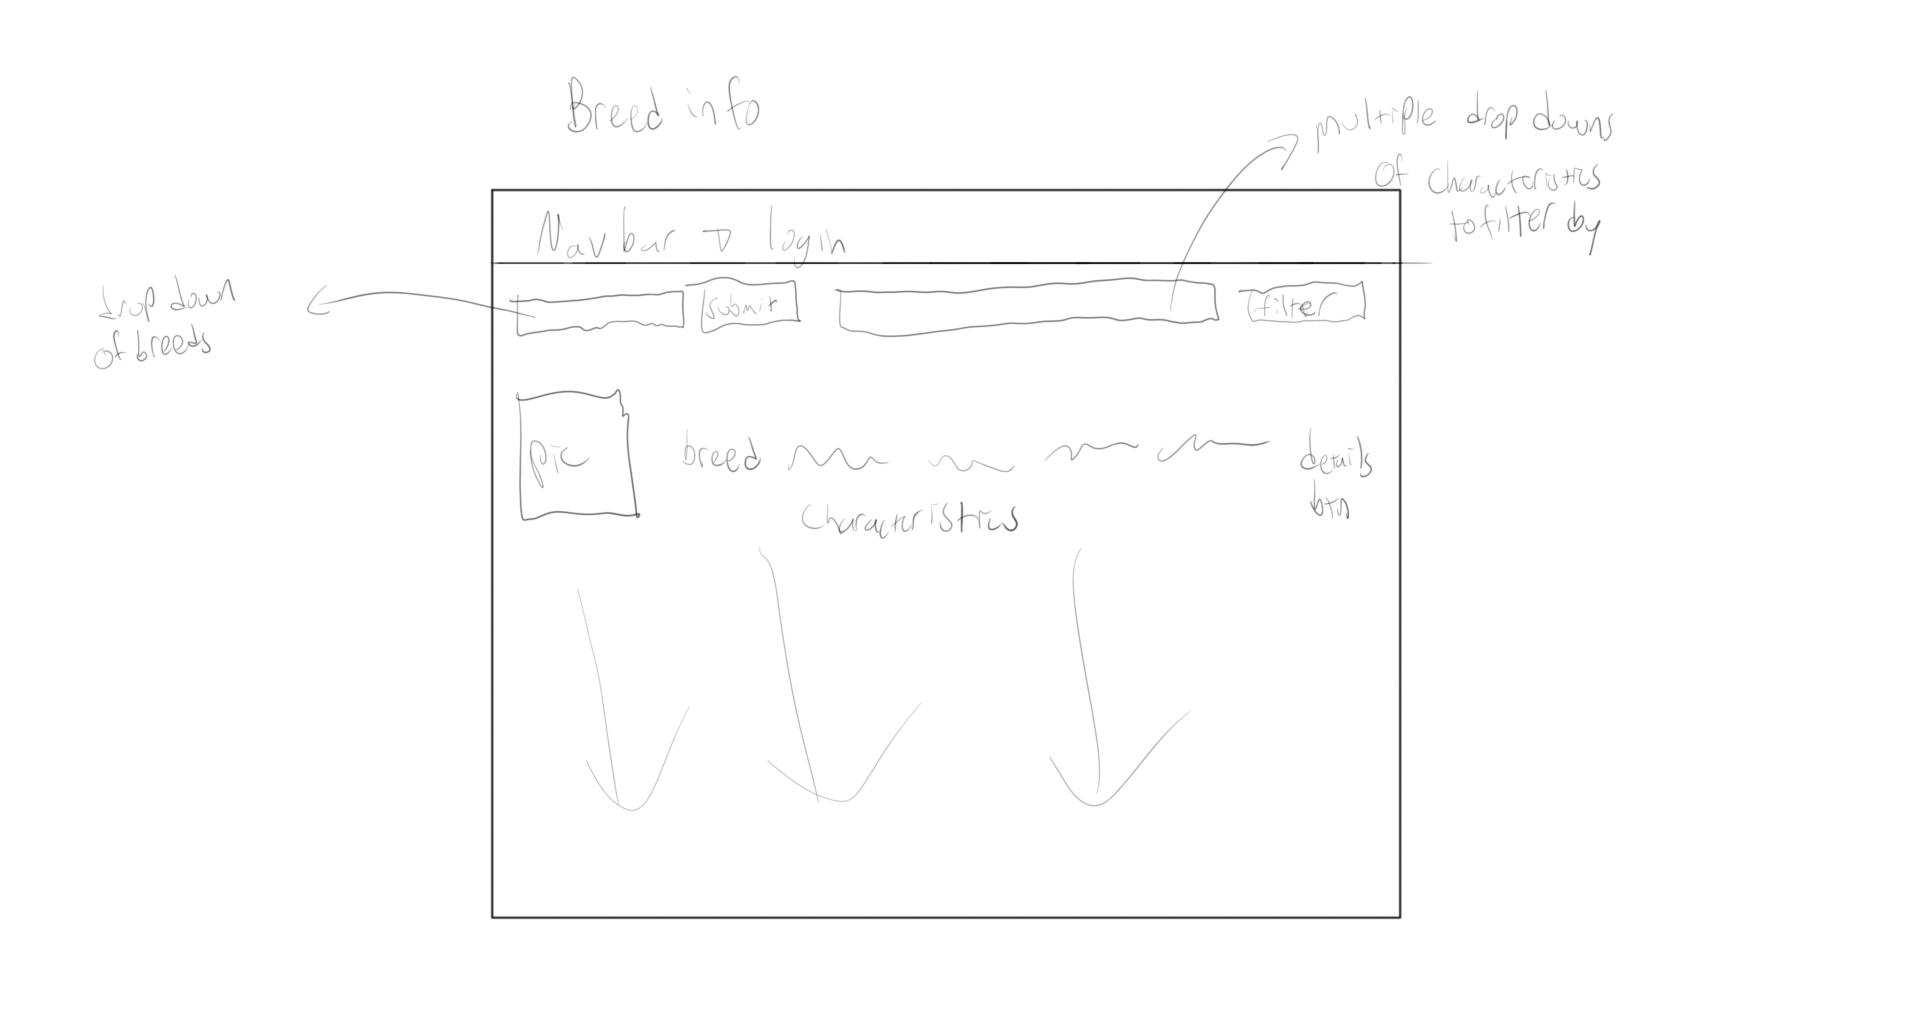 Breed info
multiple drop downs
of characteristics
to filter by
Navbar → login
drop down
of breeds
submit
filter
pic
breed
details
btn
characteristics